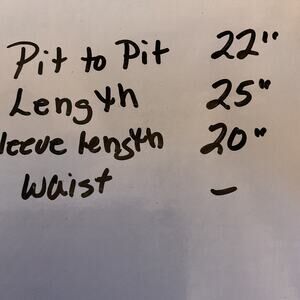 Pit to Pit 22"
Length 25"
leeve length 20"
Waist –